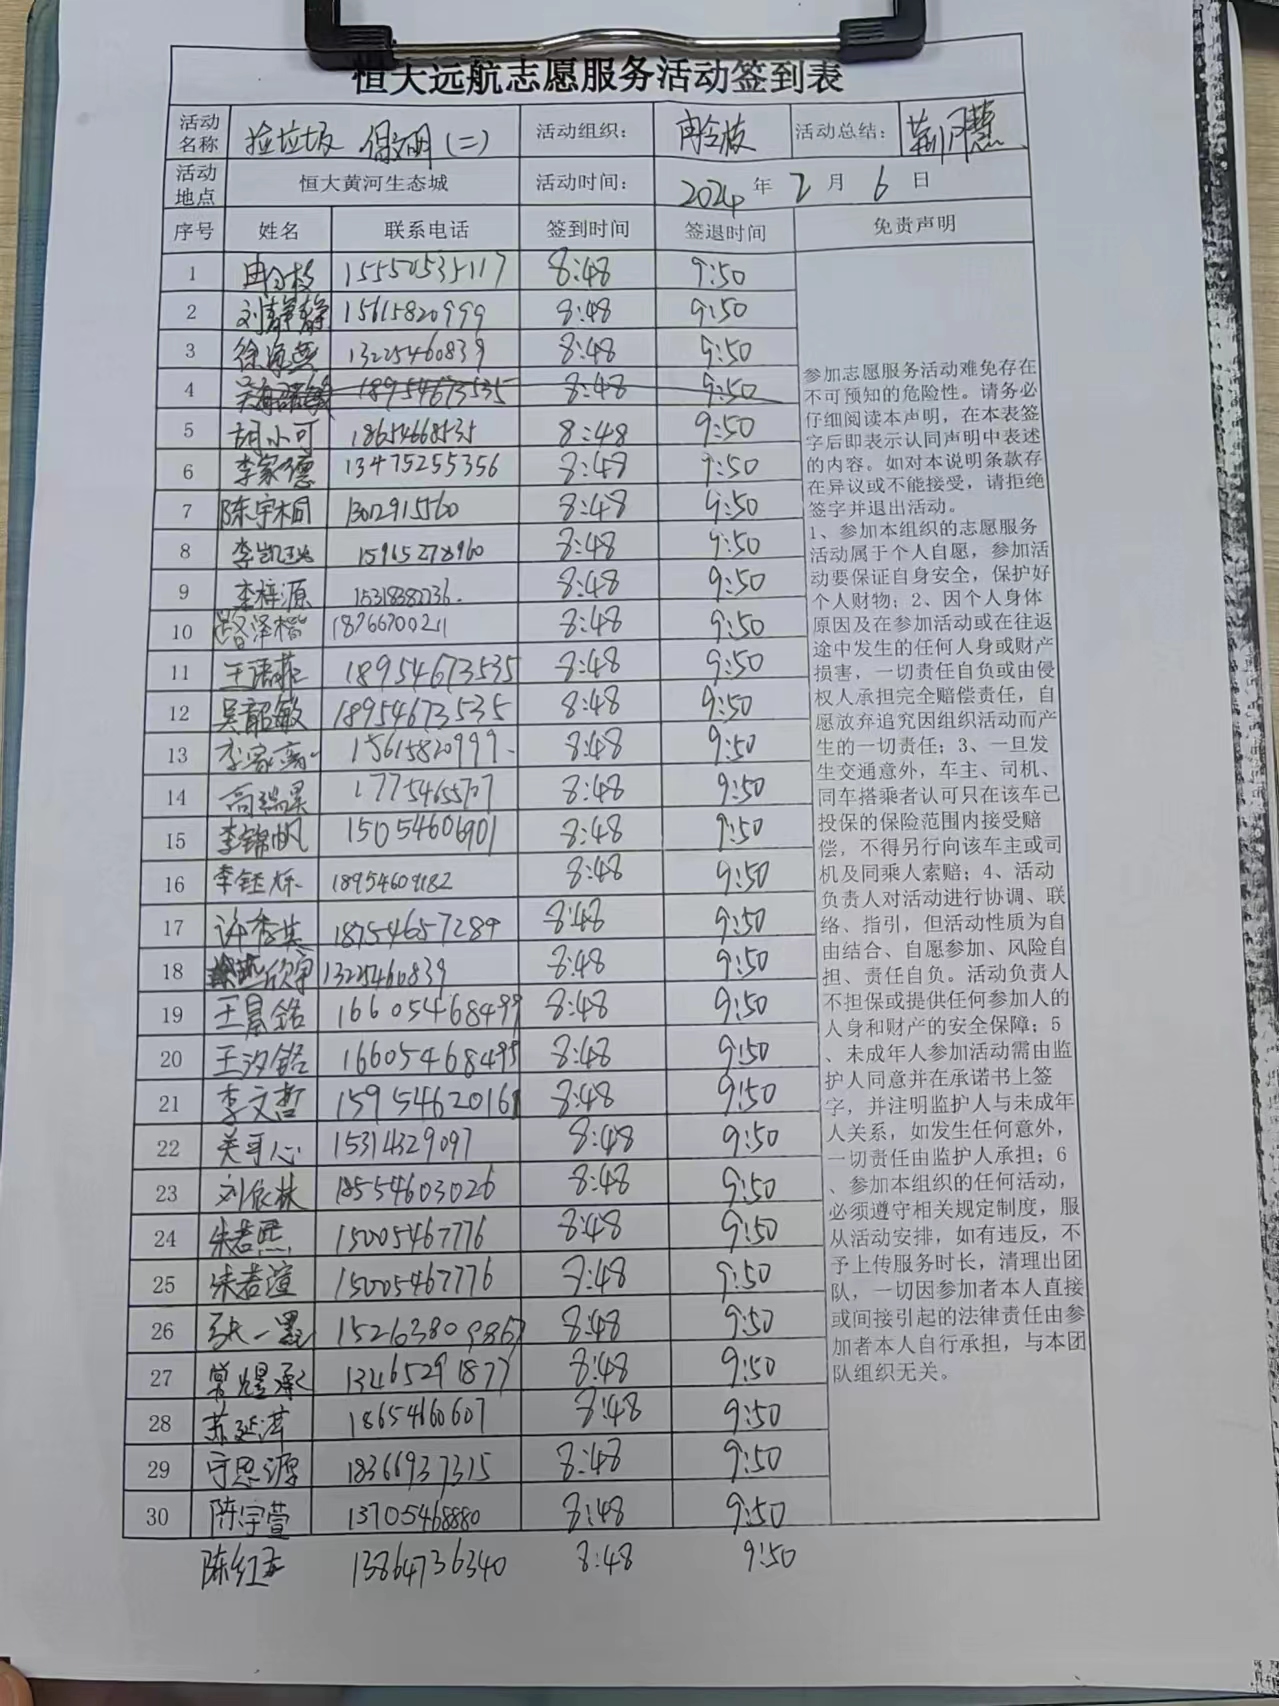 恒大远航志愿服务活动签到表
活动名称 捡垃圾 保文明(二) 活动组织: 冉令枝 活动总结:
活动地点 恒大黄河生态城 活动时间: 2024 年 2 月 6 日
序号 姓名 联系电话 签到时间 签退时间 免责声明
1 冉令枝 15550535117 8:48 9:50
2 刘静静 15615820999 8:48 9:50
3 徐海燕 13225460839 8:48 9:50
4 18954673535 8:48 9:50
5 胡小可 18654668535 8:48 9:50
6 李家德 13475255356 8:48 9:50
7 陈宇桐 13012915560 8:48 9:50
8 15965278960 8:48 9:50
9 李梓源 15318382236. 8:48 9:50
10 路泽楷 18766700211 8:48 9:50
11 18954673535 8:48 9:50
12 吴韶敏 18954673535 8:48 9:50
13 15615820999. 8:48 9:50
14 高瑞昊 17754655707 8:48 9:50
15 李锦帆 15054606901 8:48 9:50
16 李钰烁 18954609182 8:48 9:50
17 许秀英 18754657289 8:48 9:50
18 13225460839 8:48 9:50
19 王晨铭 16605468499 8:48 9:50
20 王汐铭 16605468499 8:48 9:50
21 李文哲 15954620161 8:48 9:50
22 关可心 15314329097 8:48 9:50
23 刘依林 18554603026 8:48 9:50
24 朱若熙 15005467776 8:48 9:50
25 朱若渲 15005467776 8:48 9:50
26 15263809867 8:48 9:50
27 常煜承 13465291877 8:48 9:50
28 苏延泽 1865460607 8:48 9:50
29 守思源 18366937315 8:48 9:50
30 陈宇萱 13705468880 8:48 9:50
陈红 13864736340 8:48 9:50
参加志愿服务活动难免存在
不可预知的危险性。请务必
仔细阅读本声明，在本表签
字后即表示认同声明中表述
的内容。如对本说明条款存
在异议或不能接受，请拒绝
签字并退出活动。
1、参加本组织的志愿服务
活动属于个人自愿，参加活
动要保证自身安全，保护好
个人财物；2、因个人身体
原因及在参加活动或在往返
途中发生的任何人身或财产
损害，一切责任自负或由侵
权人承担完全赔偿责任，自
愿放弃追究因组织活动而产
生的一切责任；3、一旦发
生交通意外，车主、司机、
同车搭乘者认可只在该车已
投保的保险范围内接受赔
偿，不得另行向该车主或司
机及同乘人索赔；4、活动
负责人对活动进行协调、联
络、指引，但活动性质为自
由结合、自愿参加、风险自
担、责任自负。活动负责人
不担保或提供任何参加人的
人身和财产的安全保障；5
、未成年人参加活动需由监
护人同意并在承诺书上签
字，并注明监护人与未成年
人关系，如发生任何意外，
一切责任由监护人承担；6
、参加本组织的任何活动，
必须遵守相关规定制度，服
从活动安排，如有违反，不
予上传服务时长，清理出团
队，一切因参加者本人直接
或间接引起的法律责任由参
加者本人自行承担，与本团
队组织无关。